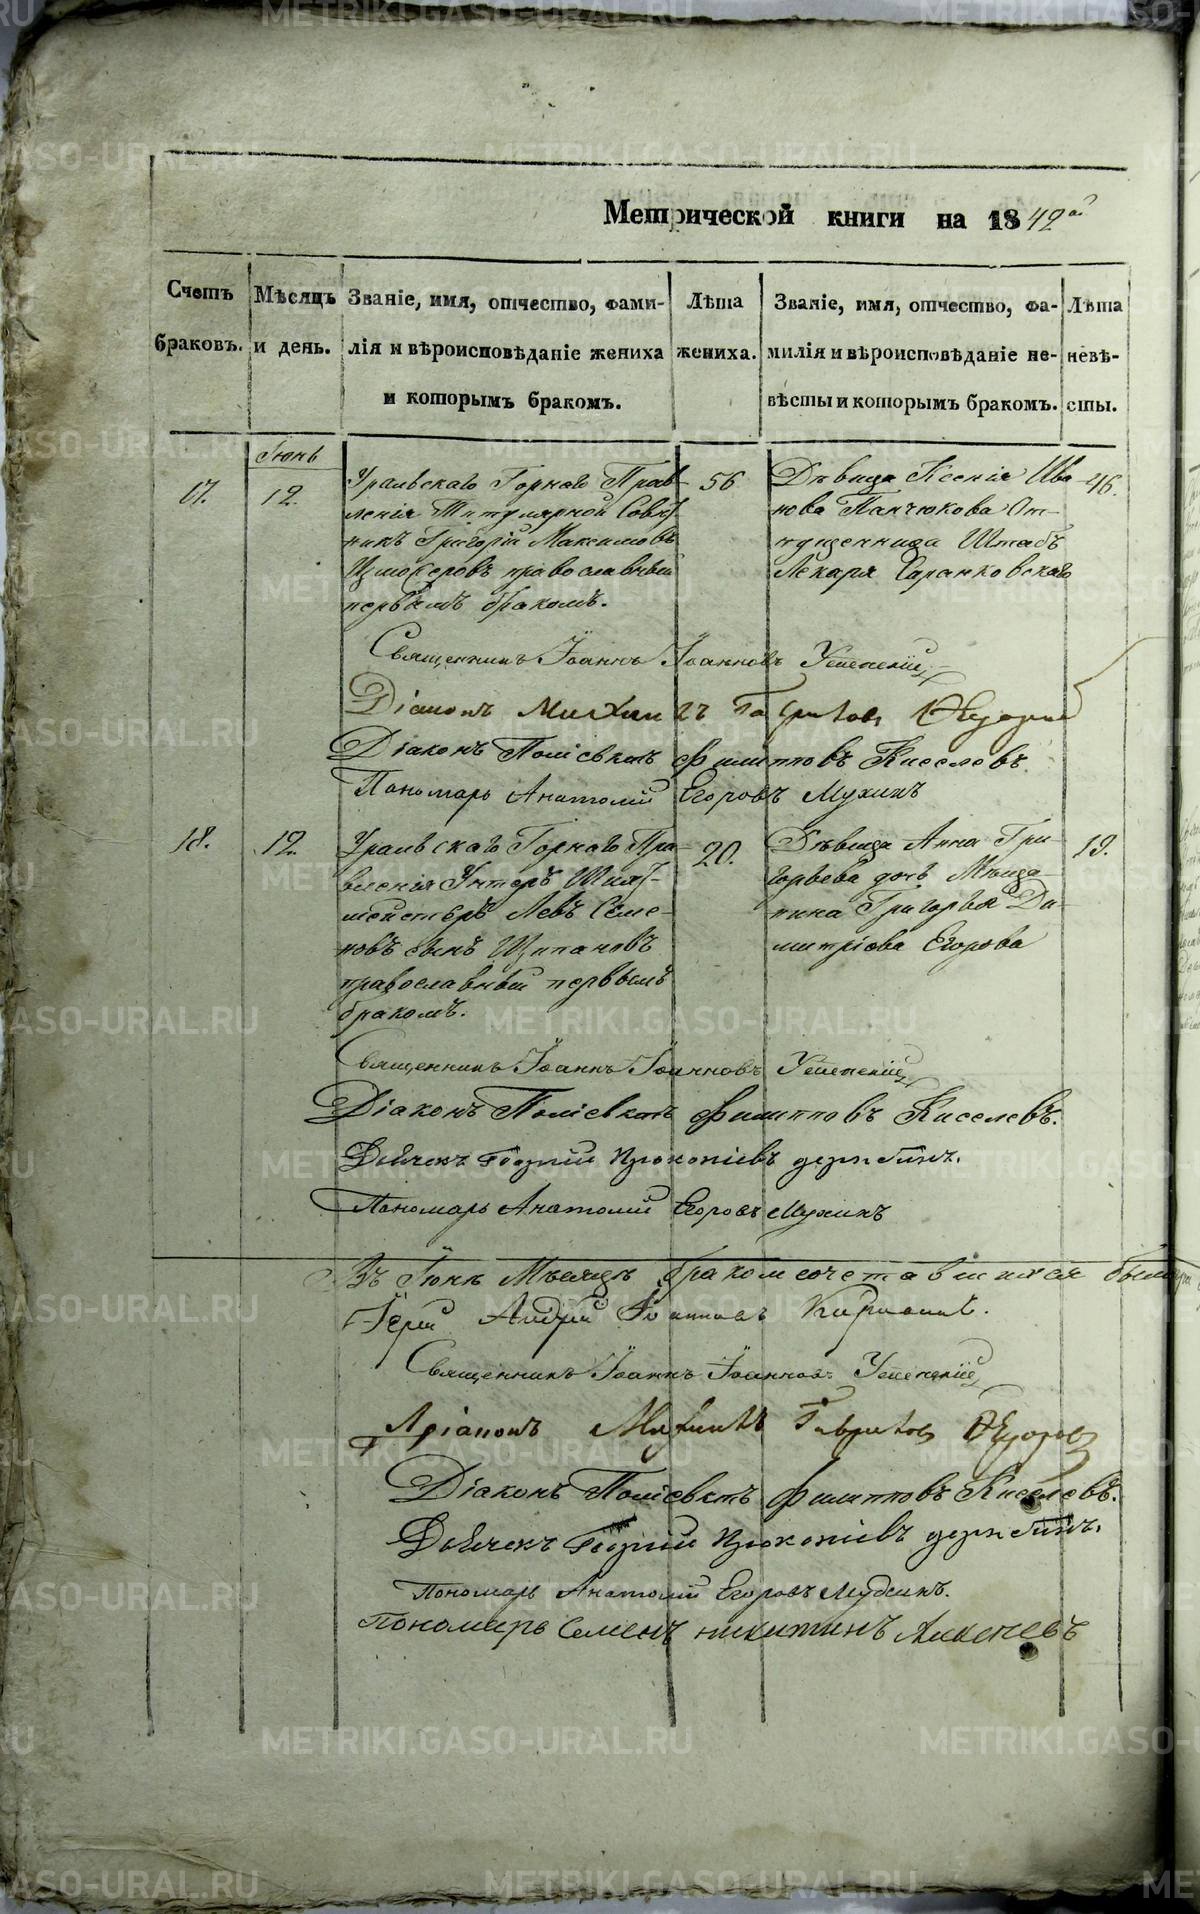 Метрической книги на 1842й
Счетъ браковъ.
Мѣсяцъ и день.
Званіе, имя, отчество, фами-
лія и вѣроисповѣданіе жениха
и которымъ бракомъ.
Лѣта жениха.
Званіе, имя, отчество, фа-
милія и вѣроисповѣданіе не-
вѣсты и которымъ бракомъ.
Лѣта невѣ-
сты.
Іюнь
17. 12.
Уральскаго Горнаго Прав-
ленія Титулярной Совѣт-
никъ Григорій Максимовъ
православный
первымъ бракомъ.
56
Дѣвица Ксенія Ива-
нова Панчюкова От-
пущенница Штабъ
Лекаря Саранковскаго
46.
Священникъ Іоаннъ Іоанновъ Успенскій
Діаконъ Михаилъ Гавриловъ Ѳедоровъ
Діаконъ Поліевктъ Филипповъ Киселевъ.
Пономарь Анатолій Егоровъ Мухинъ
18. 12.
Уральскаго Горнаго Пра-
вленія Унтеръ Шихт-
мейстеръ Левъ Семе-
новъ сынъ Щипановъ
православный первымъ
бракомъ.
20.
Дѣвица Анна Гри-
горьева дочь Мѣща-
нина Григорья Ди-
митріева Егорова
19.
Священникъ Іоаннъ Іоанновъ Успенскій
Діаконъ Поліевктъ Филипповъ Киселевъ.
Дьячекъ Георгій Прокопіевъ
Пономарь Анатолій Егоровъ Мухинъ
Въ Іюнѣ Мѣсяцѣ бракомсочетавшихся
Іерей Андрей Іоанновъ
Священникъ Іоаннъ Іоанновъ Успенскій
Діаконъ Михаилъ Гавриловъ Ѳедоровъ
Діаконъ Поліевктъ Филипповъ Киселевъ.
Дьячекъ Георгій Прокопіевъ
Пономарь Анатолій Егоровъ Мухинъ.
Пономарь Семенъ Никитинъ
METRIKI.GASO-URAL.RU